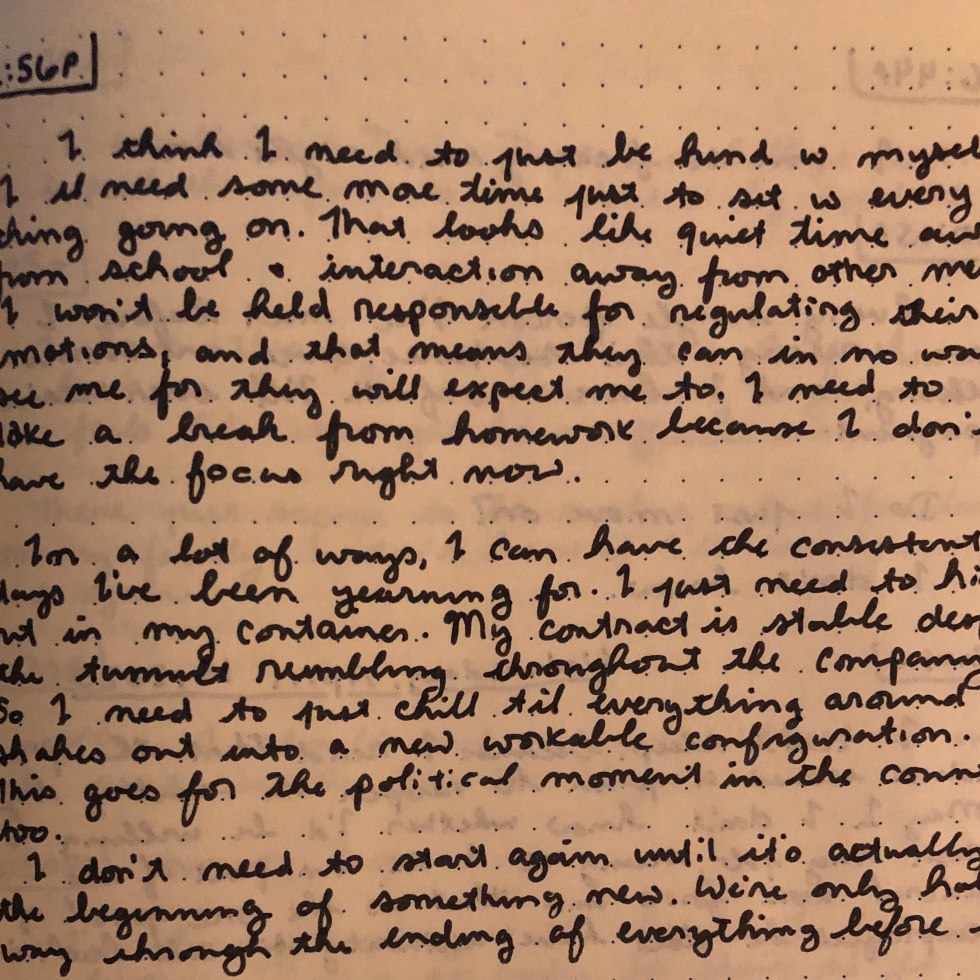 :56P.
I think I need to just be kind w mysel
I need some more time just to sit w every
thing going on. That looks like quiet time aw
from school & interaction away from other me
I won't be held responsible for regulating their
motions, and that means they can in no wa
see me for they will expect me to. I need to
take a break from homework because I don'
have the focus right now.
In a lot of ways, I can have the consistent
days I've been yearning for. I just need to hi
out in my container. My contract is stable des
the tumult rumbling throughout the company
So I need to just chill til everything around
shakes out into a new workable configuration.
This goes for the political moment in the coun
too.
I don't need to start again until it's actually
the beginning of something new. We're only hal
way through the ending of everything before